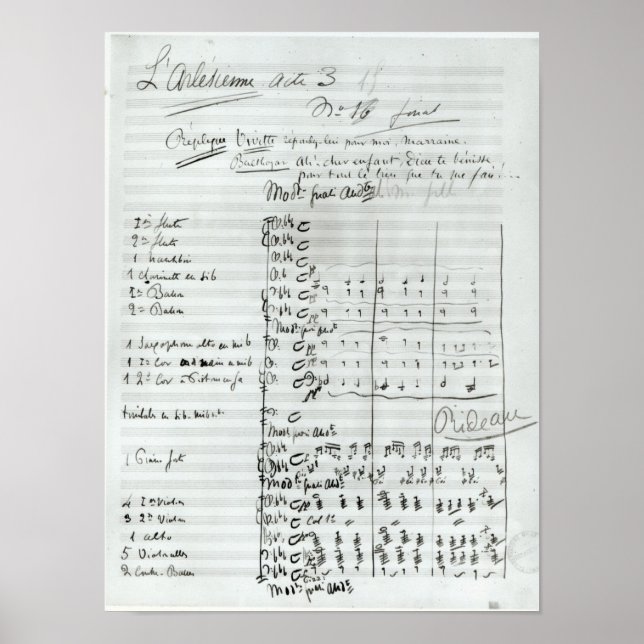 L'Arlésienne acte 3
No 16 final
Réplique Vivette répondez-lui pour moi, marraine.
Balthazar Ah! cher enfant, Dieu te bénisse
pour tout le bien que tu me fais!...
Modto quasi Andte
1re flute
2me flute
1 hautbois
1 clarinette en si b
1er Basson
2me Basson
Modto quasi Andte
1 Saxophone alto en mi b
1 1er Cor
1 2me Cor à Pistons en fa
timbales en si b. mi b.
Rideau
Modto quasi Andte
1 Piano forte
Modto quasi Andte
4 1ers Violons
3 2ds Violons Col 1o
1 alto
5 Violoncelles
2 Contre-Basses
Pizz:
Modto quasi Andte